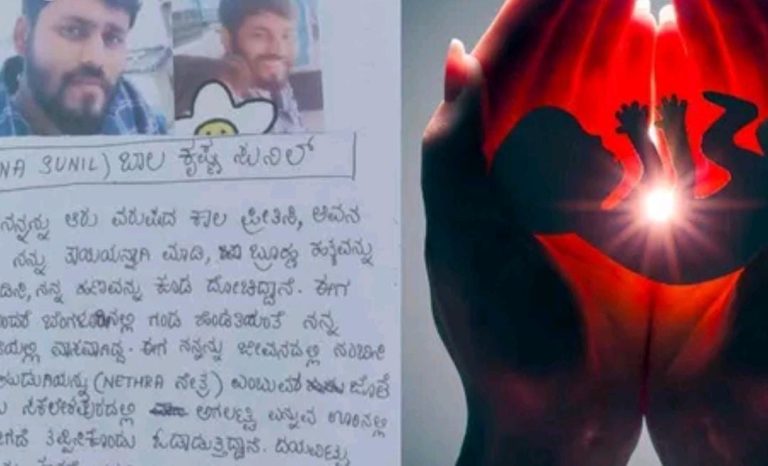 NA SUNIL) ಬಾಲ ಕೃಷ್ಣ ಸುನಿಲ್
ನನ್ನನ್ನು ಆರು ವರುಷದ ಕಾಲ ಪ್ರೀತಿಸಿ, ಅವನ
ನನ್ನು ತಾಯಿಯನ್ನಾಗಿ ಮಾಡಿ, ಬ್ರೂಣ ಹತ್ಯೆಯನ್ನು
ನನ್ನ ಹಣವನ್ನು ಕೂಡ ದೋಚಿದ್ದಾನೆ. ಈಗ
ಬೆಂಗಳೂರಿನಲ್ಲಿ ಗಂಡ ಹೆಂಡತಿಯಂತೆ ನನ್ನ
ವಾಸವಾಗಿದ್ದ. ಈಗ ನನ್ನನ್ನು ಜೀವನದಲ್ಲಿ ನಂಬಿಸಿ
ಹುಡುಗಿಯನ್ನು (NETHRA ನೇತ್ರ) ಎಂಬುವರ ಜೊತೆ
ಸಕಲೇಶಪುರದಲ್ಲಿ ಅಗಲಟ್ಟಿ ಎನ್ನುವ ಊರಿನಲ್ಲಿ
ತಪ್ಪಿಸಿಕೊಂಡು ಓಡಾಡುತ್ತಿದ್ದಾನೆ. ದಯವಿಟ್ಟು